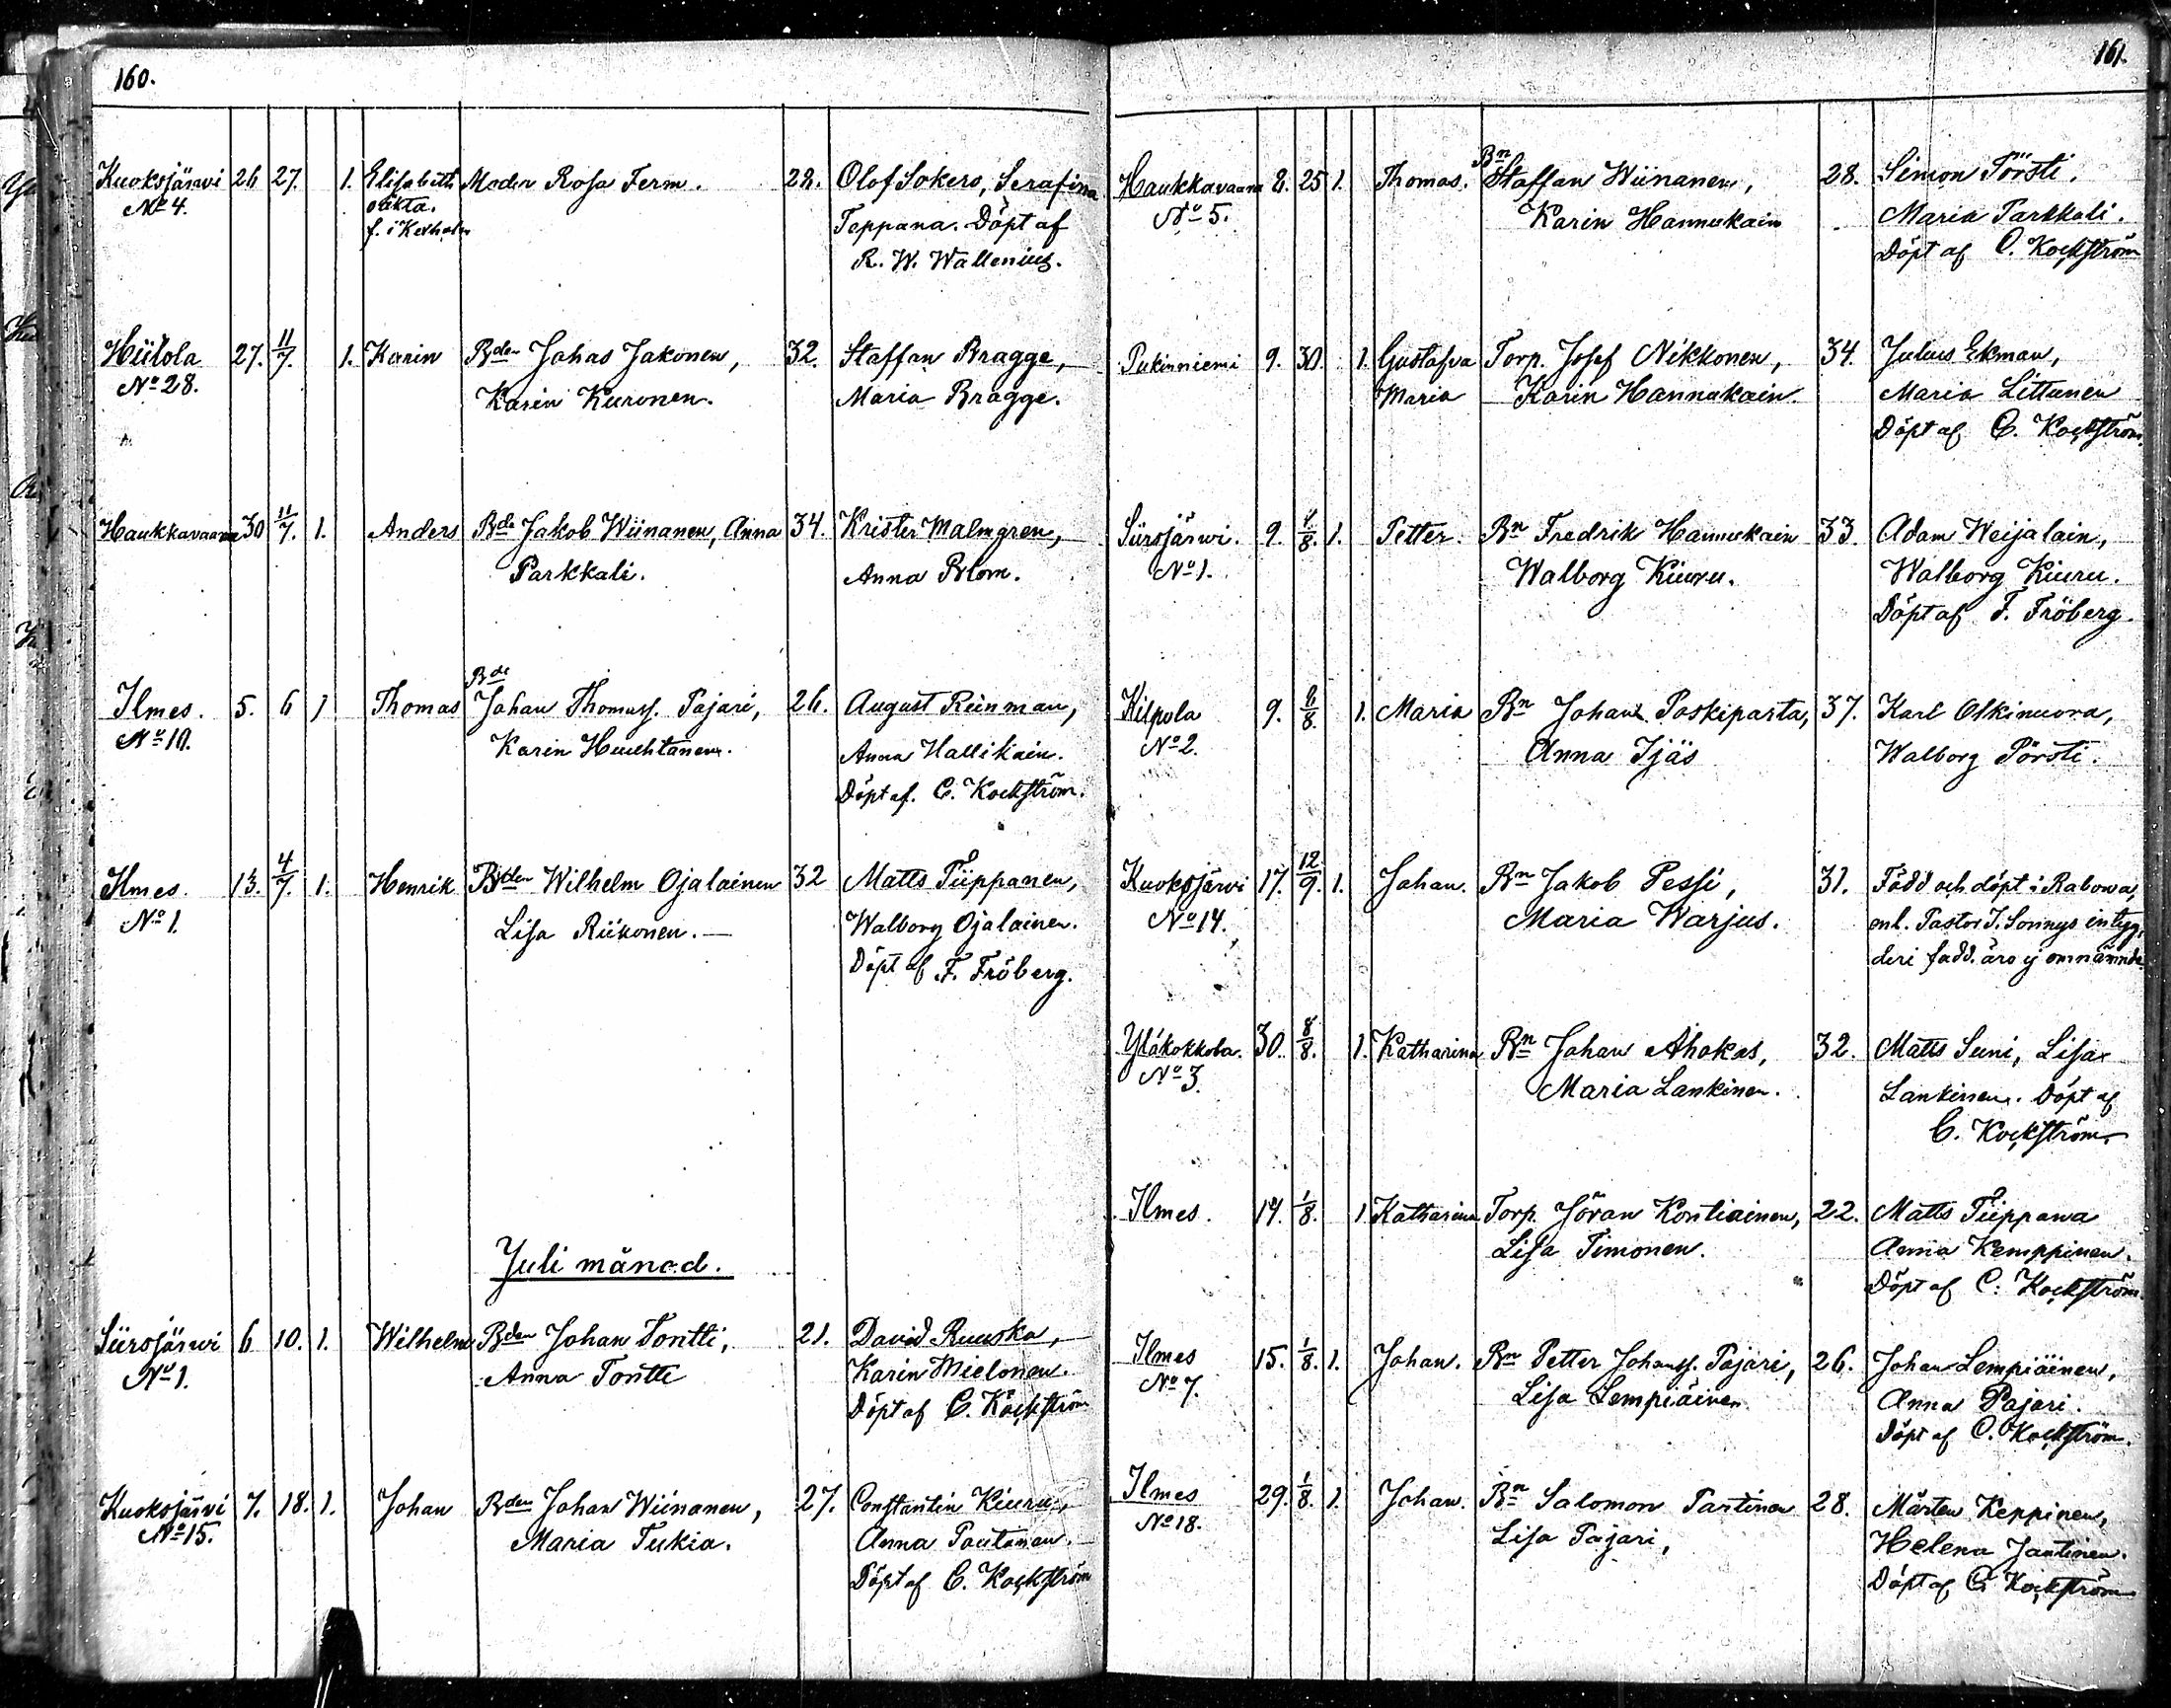 160.
Kuoksjärwi 26 27. 1. Elisabeth Moder Rosa Term. 22. Olof Sokero, Serafina
No 4. oäkta. Teppana. Döpt af
f. i Kexholm R. W. Wallenius.
Hiitola 27. 11/7. 1. Karin Bden Johas Jakonen, 32. Staffan Bragge,
No 28. Karin Kuronen. Maria Bragge.
Haukkavaara 30 11/7. 1. Anders Bde Jakob Wiinanen, Anna 34. Krister Malmgren,
Parkkali. Anna Blom.
Bde
Ilmes. 5. 6 1 Thomas Johan Thomass. Pajari, 26. August Reinman,
No 10. Karin Huuhtanen. Anna Hallikain.
Döpt af. C. Kockström.
Ilmes. 13. 4/7. 1. Henrik Bden Wilhelm Ojalainen 32 Matts Tiippanen,
No 1. Lisa Riikonen. Walborg Ojalainen.
Döpt af F. Fröberg.
Juli månad.
Siirojärwi 6 10. 1. Wilhelm Bden Johan Tontti, 21. David Ruuska,
No 1. Anna Tontti Karin Mielonen.
Döpt af C. Kockström
Kuoksjärvi 7. 18. 1. Johan Bden Johan Wiinanen, 27. Constantin Kiuru,
No 15. Maria Tukia. Anna Poutanen.
Döpt af C. Kockström
161.
Bn
Haukkavaara 8. 25 1. Thomas. Staffan Wiinanen, 28. Simon Pörsti.
No 5. Karin Hannukain Maria Parkkali.
Döpt af C. Kockström
Pukinniemi 9. 30. 1. Gustafva Torp. Josef Nikkonen, 34. Julius Ekman,
Maria Karin Hannukain. Maria Littunen
Döpt af C. Kockström.
Siirojärwi. 9. 1/8. 1. Petter. Bn Fredrik Hannukain 33. Adam Weijalain,
No 1. Walborg Kiuru. Walborg Kiuru.
Döpt af F. Fröberg.
Kilpola 9. 6/8. 1. Maria Bn Johan Paskiparta, 37. Karl Olkinuora,
No 2. Anna Ijäs Walborg Pörsti.
Kuoksjärvi 17. 12/9. 1. Johan. Bn Jakob Pessi, 31. Född och döpt i Rabowa,
No 14. Maria Warjus. enl. Pastor J. Sonnys intyg,
deri fadd. äro ej omnämnde
Yläkokkola. 30. 8/8. 1. Katharina Bn Johan Ahokas, 32. Matts Suni, Lisa
No 3. Maria Lankinen. Lankinen. Döpt af
C. Kockström.
Ilmes. 14. 1/8. 1 Katharina Torp. Jöran Kontiainen, 22. Matts Tiippana
Lisa Timonen. Anna Kemppinen.
Döpt af C. Kockström.
Ilmes 15. 1/8. 1. Johan. Bn Petter Johanss. Pajari, 26. Johan Lempiäinen,
No 7. Lisa Lempiäinen Anna Pajari.
Döpt af C. Kockström.
Ilmes 29. 1/8. 1. Johan. Bn Salomon Partinen 28. Mårten Keppinen,
No 18. Lisa Pajari, Helena Jantinen.
Döpt af C. Kockström